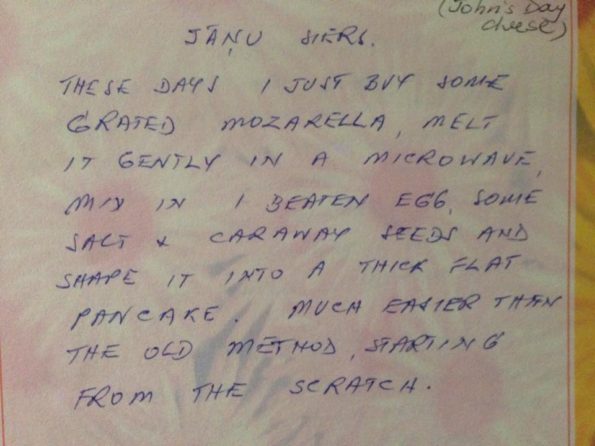 (John's Day
cheese)
JĀŅU SIERS.
THESE DAYS I JUST BUY SOME
GRATED MOZARELLA, MELT
IT GENTLY IN A MICROWAVE,
MIX IN 1 BEATEN EGG, SOME
SALT & CARAWAY SEEDS AND
SHAPE IT INTO A THICK FLAT
PANCAKE. MUCH EASIER THAN
THE OLD METHOD, STARTING
FROM THE SCRATCH.